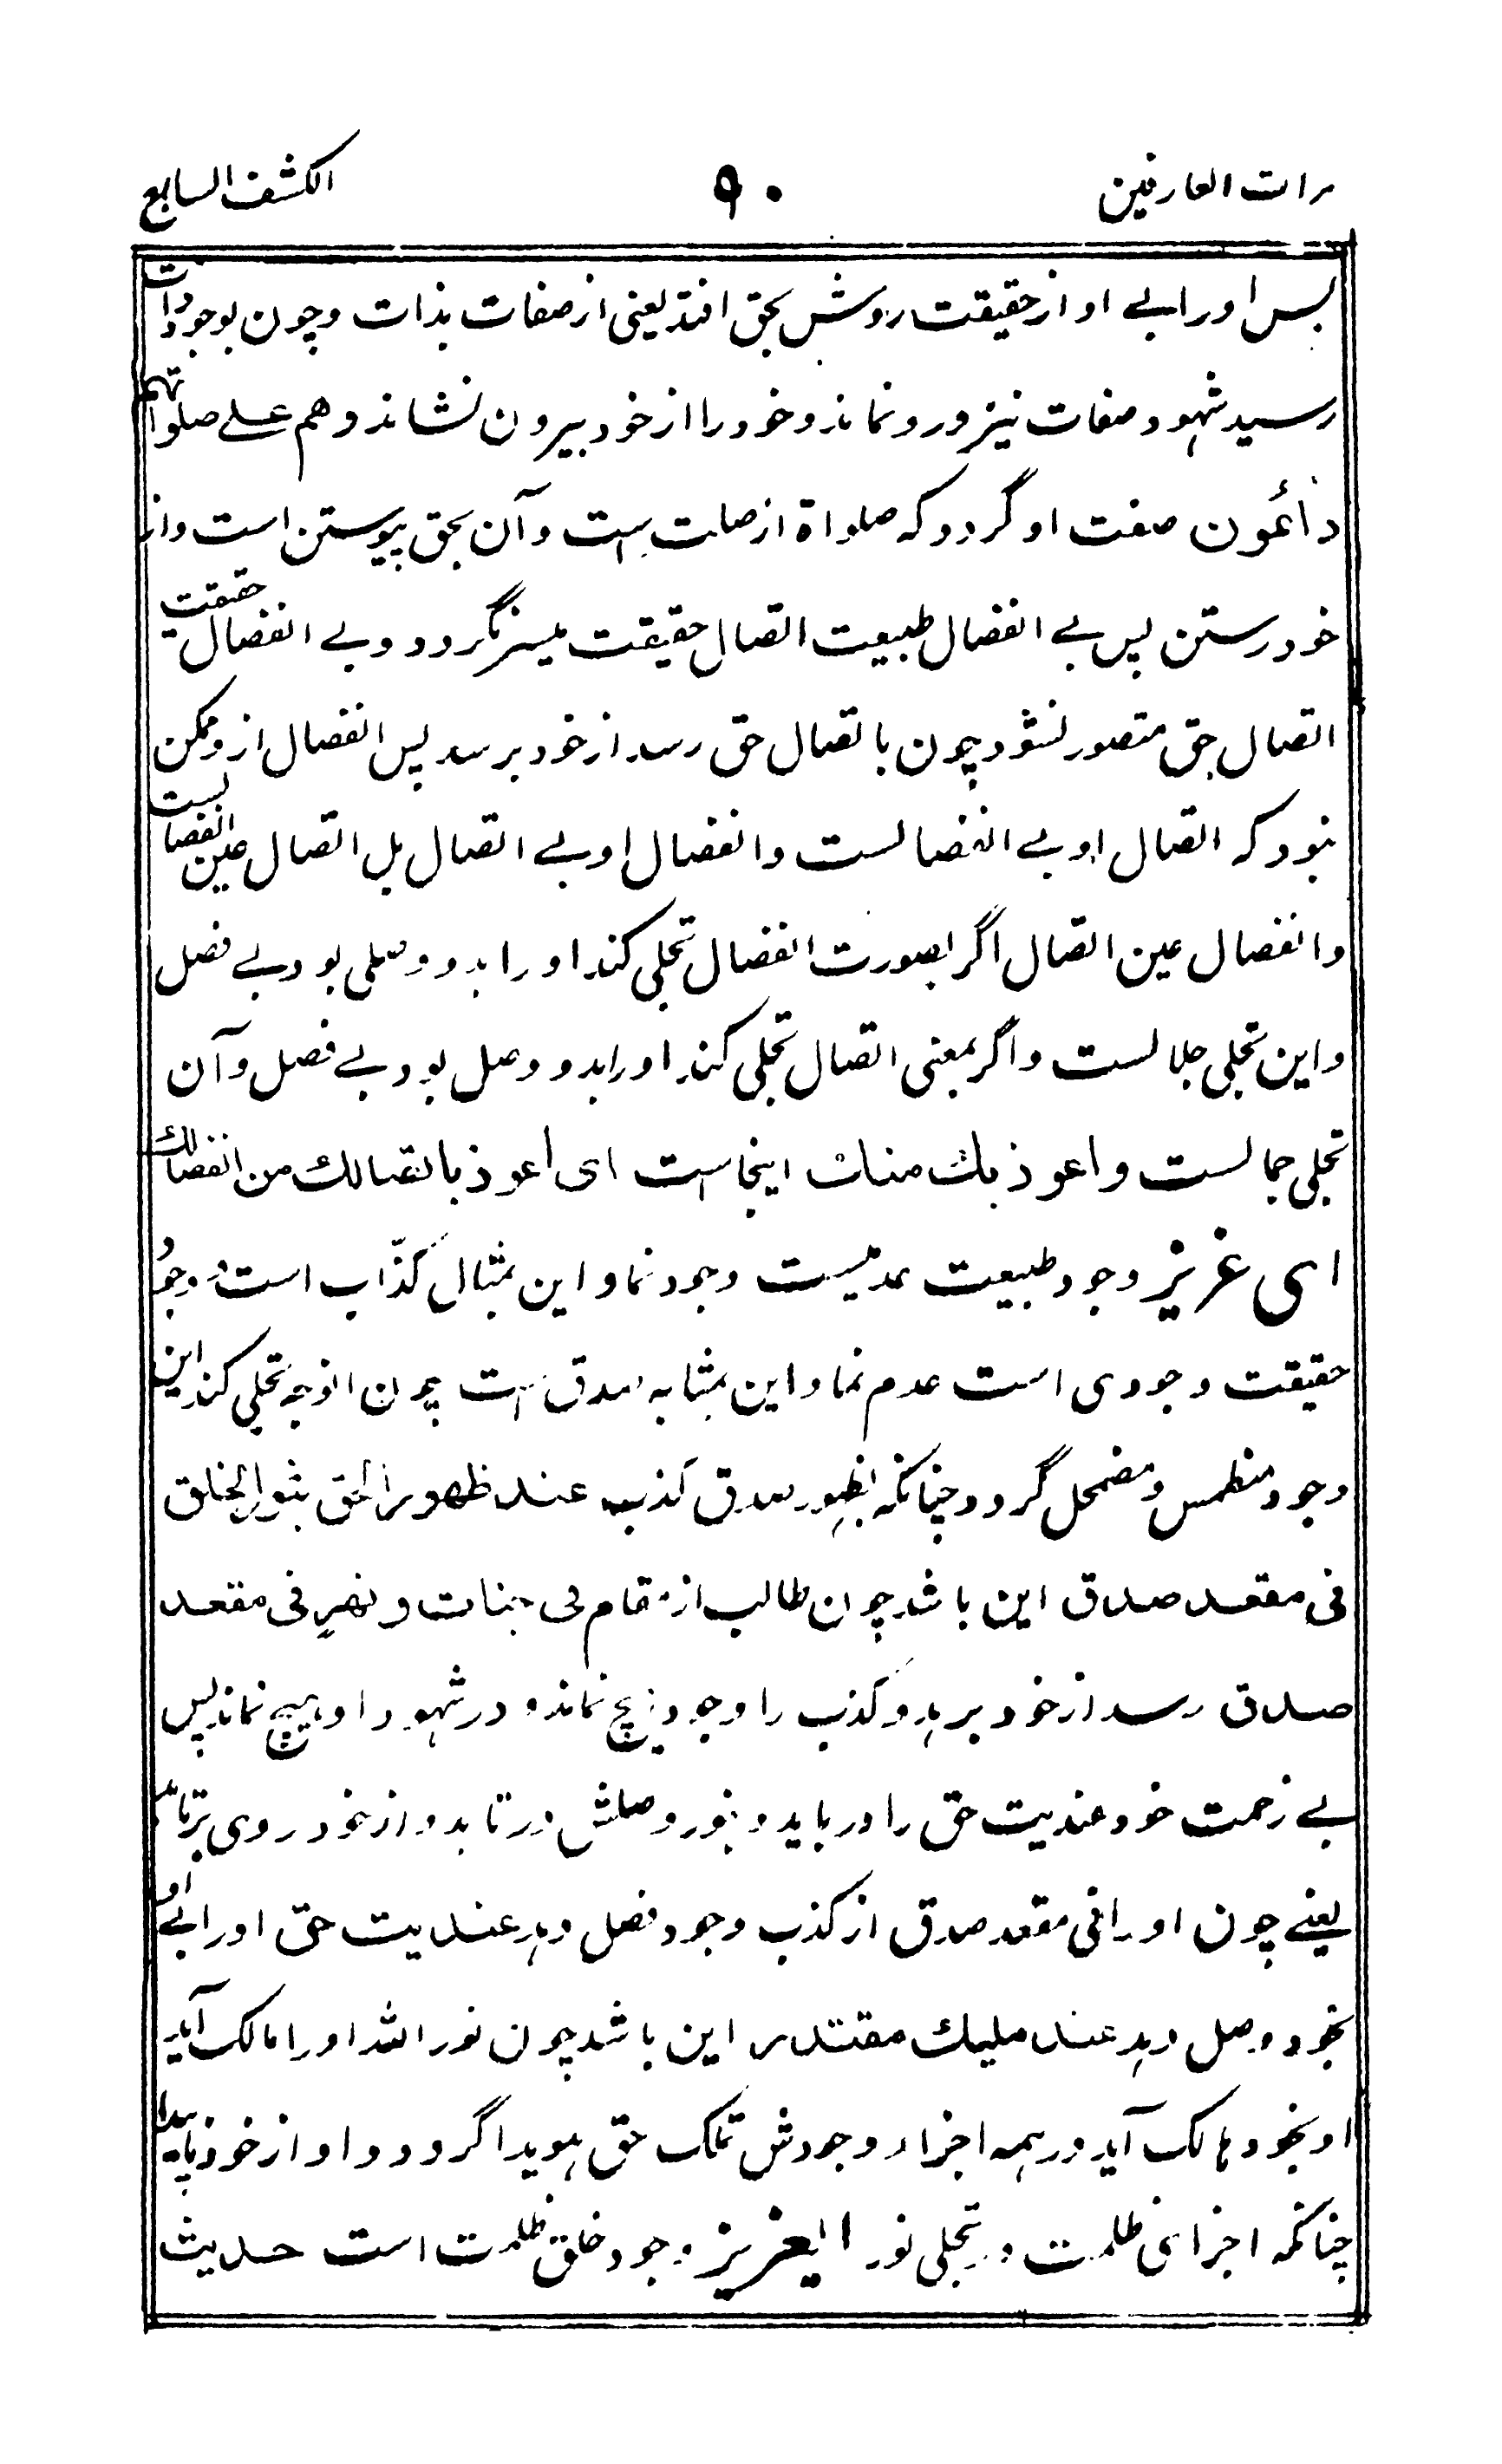 مرات العارفین ۹۰ الکشف السابع
پس او را بے او از حقیقت روش بحق افتد یعنی از صفات بذات و چون بوجود ذات
رسید شهود صفات نیز درو نماند و خود را از خود بیرون نشاند و هم علے صلواتهم
دائمون صفت او گردد که صلواة از صلت ست و آن بحق پیوستن است و از
خود رستن پس بے انفصال طبیعت اتصال حقیقت میسر نگردد و بے انفصال حقیقت
اتصال بحق متصور نشود چون باتصال حق رسد از خود برسد پس انفصال ازو ممکن
نبود که اتصال او بے انفصالست و انفصال او بے اتصال بل اتصال عین انفصالست
و انفصال عین اتصال اگر بصورت انفصال تجلی کند او را بدو وصلی بود بے فصل
و این تجلی جلالست و اگر بمعنی اتصال تجلی کند او را بدو وصل بود بے فصل و آن
تجلی جمالست و اعوذ بك منك اینجاست ای اعوذ باتصالك من انفصالك
ای عزیز وجود طبیعت عدمیست وجود نما و این بمثال کذّاب است و وجودِ
حقیقت وجودی است عدم نما و این بمثابه صدق ست چون آنوجه تجلی کند این
وجود منطمس و مضمحل گردد چنانکه بظهور صدق کذب عند ظهور الحق بثور الخلق
فی مقعد صدق این باشد چون طالب از مقام فی جنات و نهرٍ فی مقعد
صدق رسد از خود برهد و کذب را وجود هیچ نماند و در شهود او هیچ نماند پس
بے زحمت خود عندیت حق را دریابد و بنور وصلش در تابد و از خود روی برتابد
یعنے چون او را فی مقعد صدق از کذب وجود فصل دهد عندیت حق او را بے او
بخود وصل دهد عند ملیك مقتدر این باشد چون نور الله او را مالک آید
او بخود هالک آید در همه اجزاء وجودش تملک حق هویدا گردد و او از خود ناپیدا
چنانکه اجزای ظلمت در تجلی نور ایعزیز وجود خلق ظلمت است حدیث